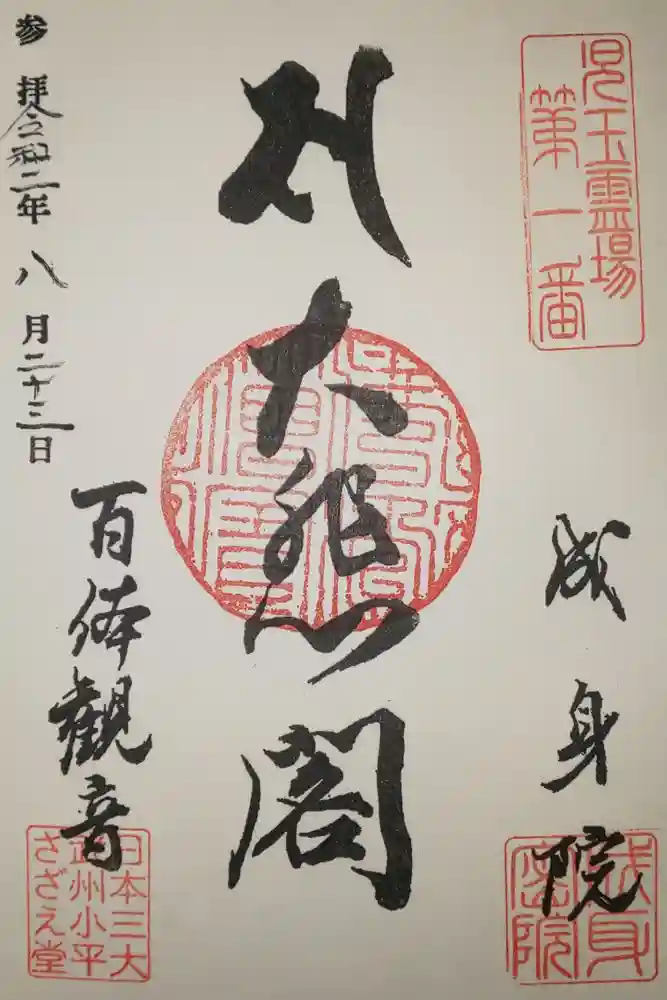 児玉霊場
第一番
成身院
大悲閣
百体観音
日本三大
武州小平
さざえ堂
参拝令和二年八月二十三日